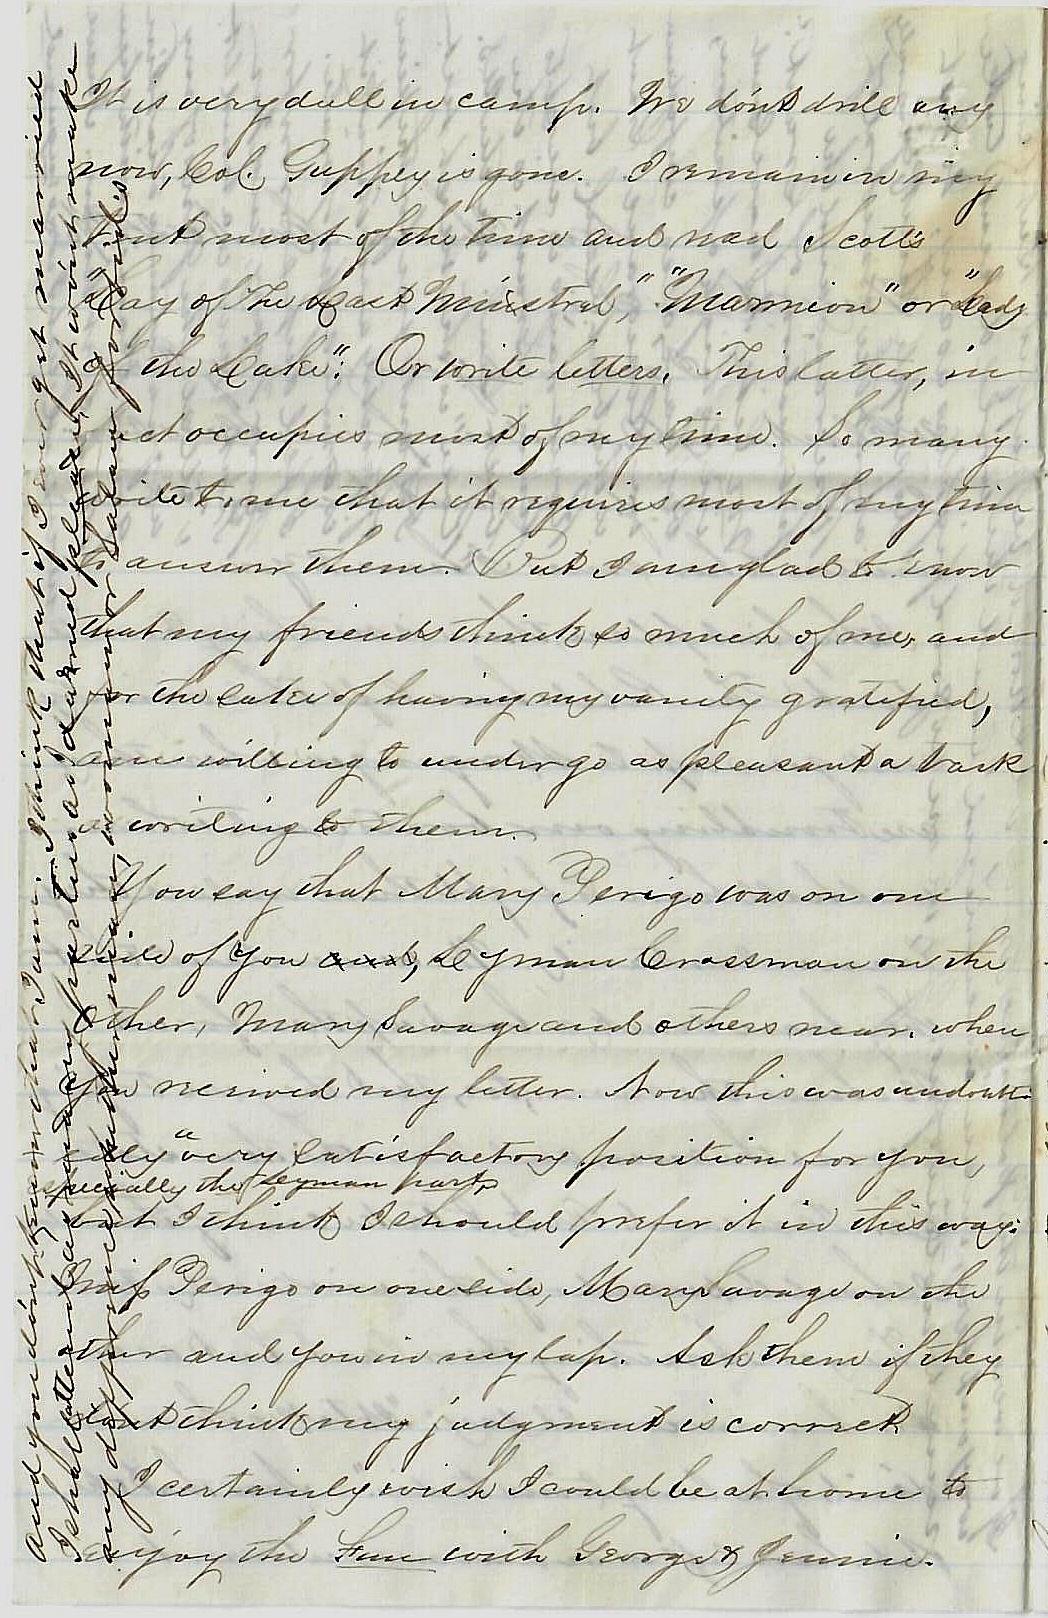 It is very dull in camp. We don't drill any
now, Col. Guppey is gone. I remain in my
tent most of the time and read Scott's
"Lay of The Last Minstrel," "Marmion" or "Lady
of the Lake". Or write letters. This latter, in
fact occupies most of my time. So many
write to me that it requires most of my time
to answer them. But I am glad to know
that my friends think so much of me, and
for the sake of having my vanity gratified,
am willing to undergo as pleasant a task
as writing to them.
You say that Mary Perigo was on one
side of you and, Lyman Crossman on the
other, Mary Savage and others near, when
you received my letter. Now this was undoubt-
edly a very satisfactory position for you,
especially the Lyman part,
but I think I should prefer it in this way:
Miss Perigo on one side, Mary Savage on the
other and you in my lap. Ask them if they
don't think my judgment is correct
I certainly wish I could be at home to
enjoy the Fun with George & Jennie.
And you don't know what I am. I think that if I ever get married
I shall attend as many parties as I darned please. It won't make
any difference whether man, woman or babam forbids